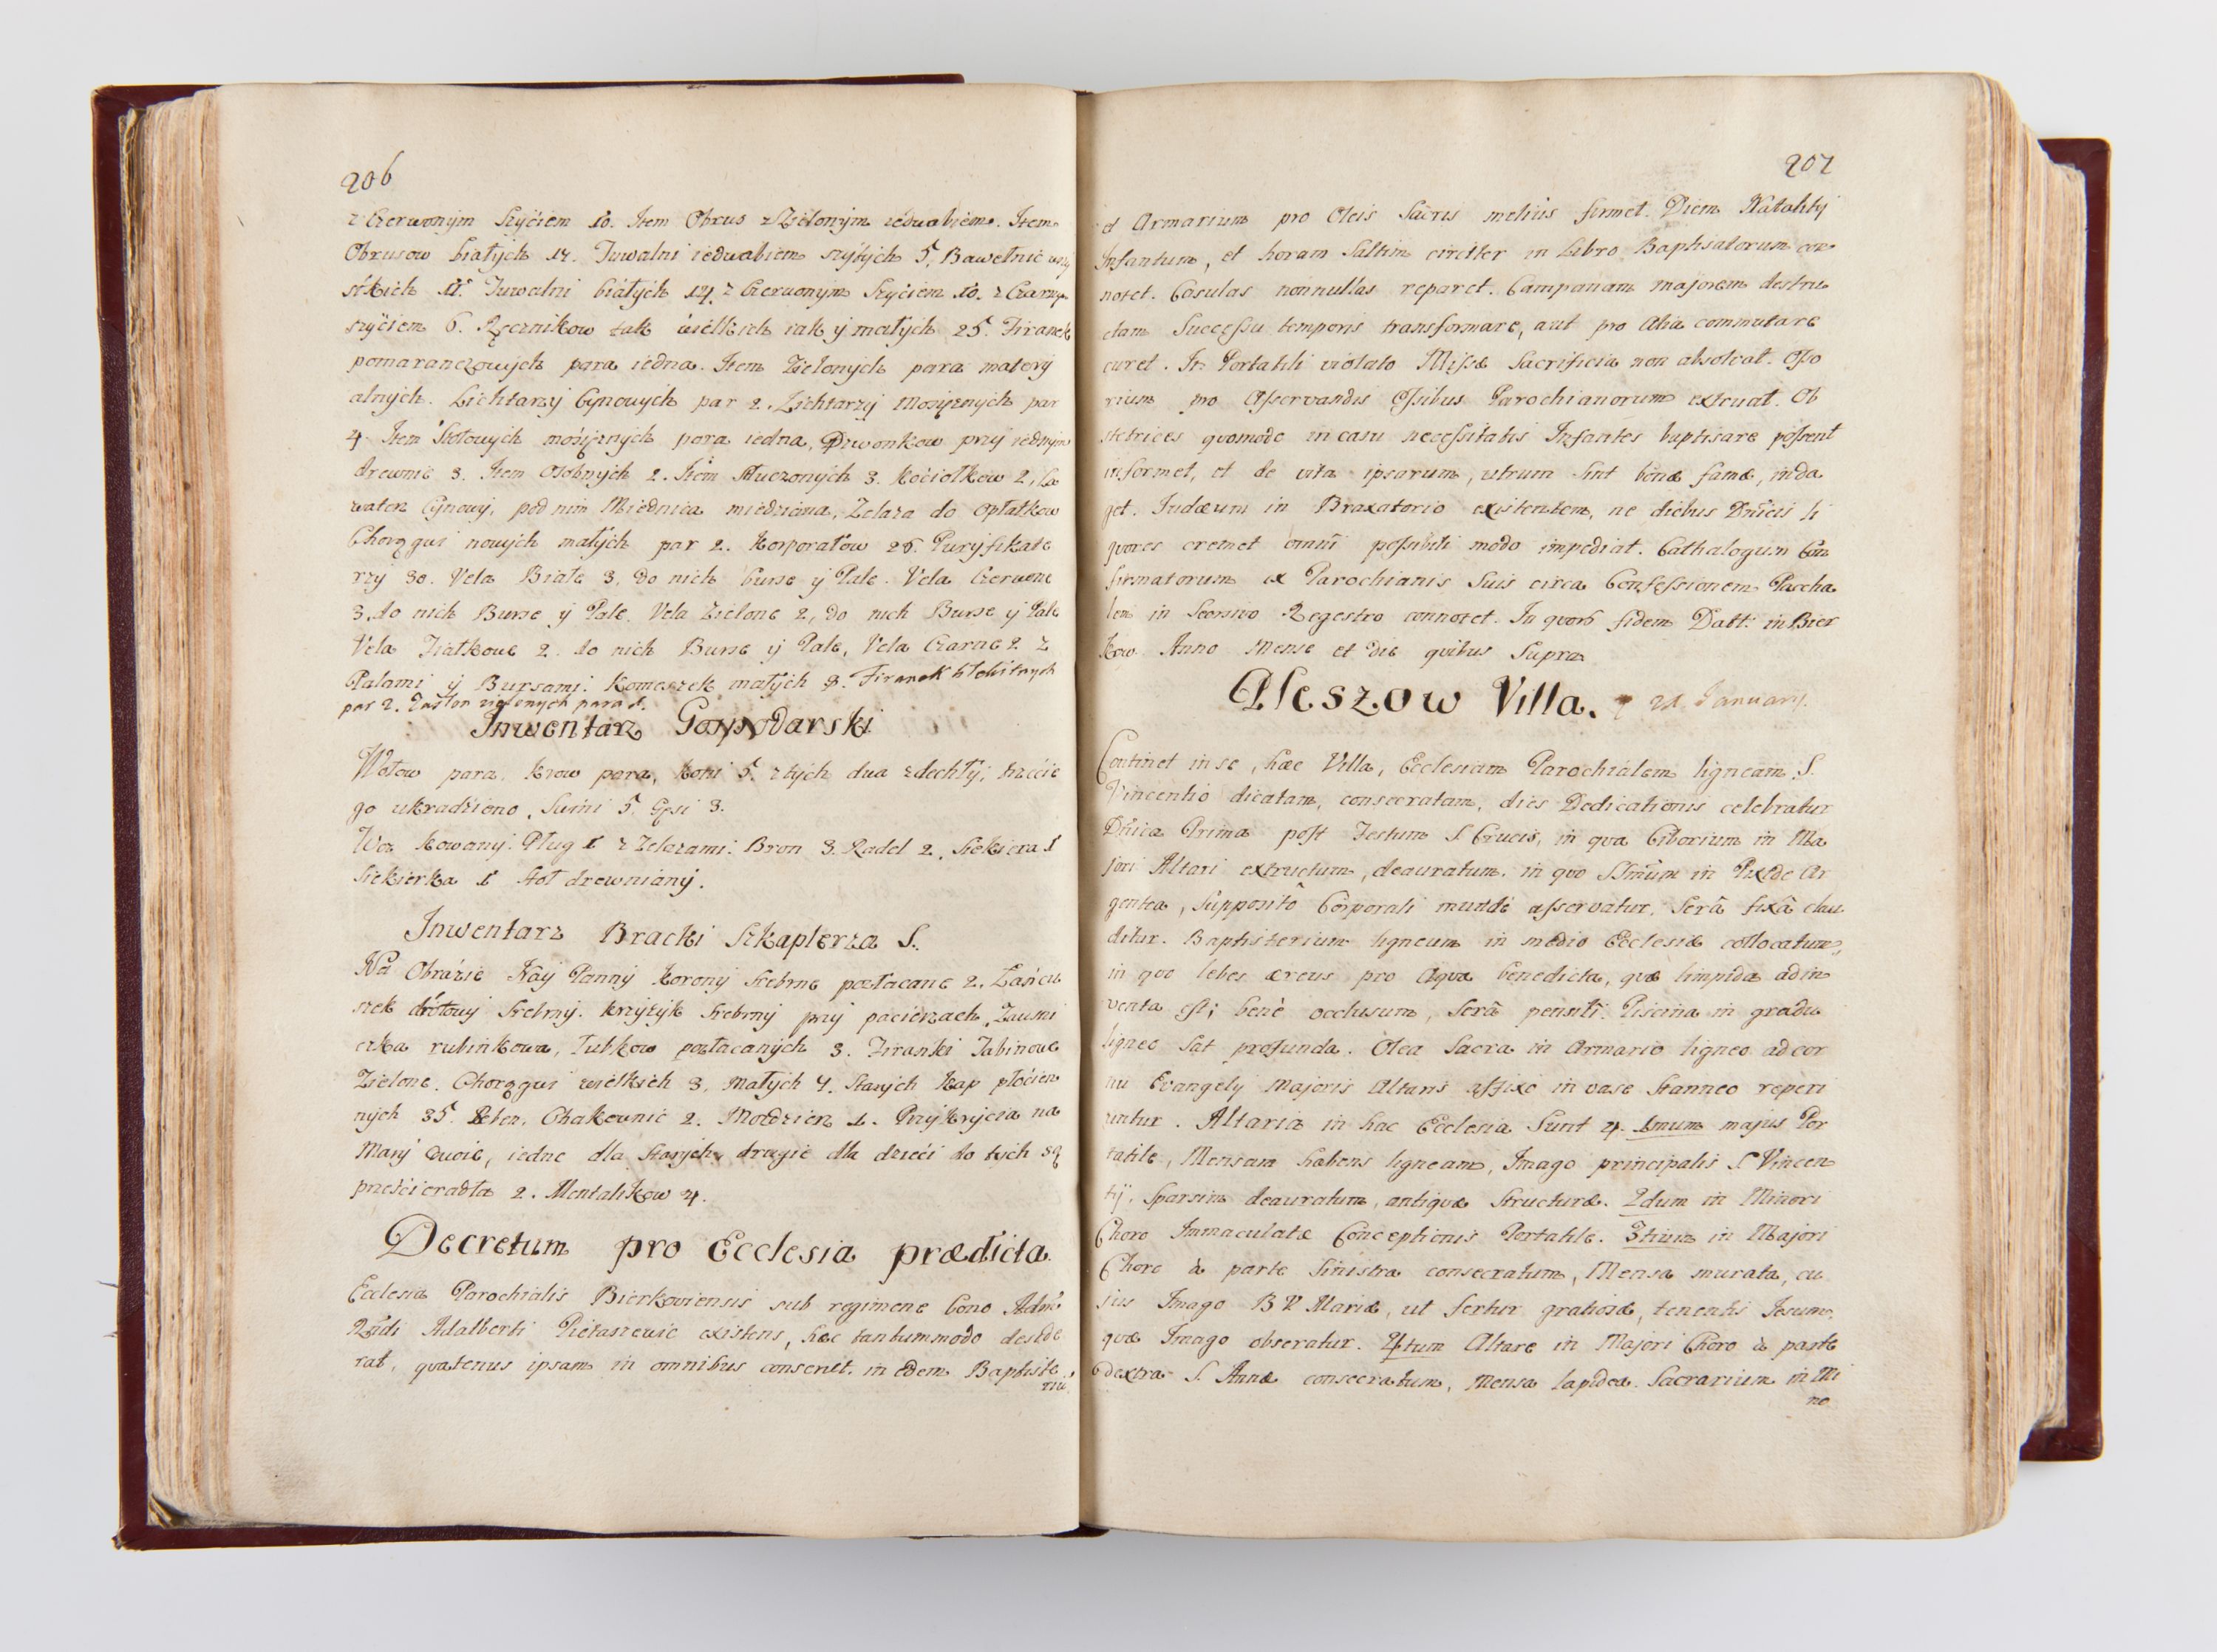 206
z Czerwonym Szyciem 10. Item Obrus z Zielonym iedwabiem. Item
Obrusow białych 14. Tuwalni iedwabiem szytych 5. Bawełnic wszy
stkich 11. Tuwalni białych 14. z Czerwonym Szyciem 10. z Czarnym
szyciem 6. Ręcznikow tak wielkich iak y małych 25. Firanek
pomaranczowych para iedna. Item Zielonych para matery
alnych. Lichtarzy Cynowych par 2. Lichtarzy Mosiężnych par
4 Item Stołowych mosiężnych para iedna, Dzwonkow przy iednym
drewnie 3. Item Osobnych 2. Item Tłuczonych 3. Kociołkow 2, La
waterz Cynowy, pod nim Miednica miedziana, Zelaza do opłatkow
Chorągwi nowych małych par 2. Korporałow 26. Puryfikate
rzy 30. Vela Białe 3, do nich Burse y Pale. Vela Czerwone
3. do nich Burse y Pale. Vela Zielone 2, do nich Burse y Pale
Vela Fiałkowe 2. do nich Burse y Pale, Vela Czarne 2 z
Palami y Bursami. Komeszek małych 8. Firanek błekitnych
par 2. Zasłon zielonych para 1.
Inwentarz Gospodarski
Wołow para, krow para, koni 5. z tych dwa zdechły, trzecie
go ukradziono. Swini 5. Gęsi 3.
Woz kowany. Pług 1 z Zelazami. Bron 3. Radel 2. Siekiera 1
Siekierka 1 stoł drewniany.
Inwentarz Bracki Szkaplerza S.
Na Obrazie Nay Panny Korony Srebrne pozłacane 2. Łancu
szek drótowy Srebrny. krzyżyk Srebrny przy pacierzach, Zausni
czka rubinkowa, Tubkow pozłacanych 3. Firanki Tabinowe
Zielone. Chorągwi wielkich 3. małych 4. Starych kap płocien
nych 35. Chałeunic 2. Mozdzierz 1. Przykrycia na
Mary dwoie, iedne dla Starych, drugie dla dzieci do tych są
prześcieradła 2. Mentalikow 4.
Decretum pro Ecclesia prædicta.
Ecclesia Parochialis Bierkoviensis sub regimene bono Adm:
Rndi Adalberti Pietaszewic existens, hæc tantummodo deside
rat, quatenus ipsam in omnibus conservet. in edem Baptiste
riu
207
et Armarium pro Oleis Sacris melius firmet. Diem Natalitij
Infantum, et horam Saltim circiter in Libro Baptisatorum con
notet. Casulas nonnullas reparet. Campanam majorem destru
ctam Successu temporis transformare, aut pro alia commutare
curet. In Portatili violato Missæ Sacrificia non absolvat. Osso
rium pro Asservandis Ossibus Parochianorum extruat. Ob
stetrices quomodo in casu necessitatis Infantes baptisare possent
informet, et de vita ipsarum, utrum sint bonæ famæ, inda
get. Judæum in Braxatorio existentem, ne diebus Dnicis li
quores cremet omni possibili modo impediat. Cathalogum Con
firmatorum ex Parochianis Suis circa Confessionem Pascha
lem in Seorsivo Regestro connotet. In quorũ fidem Datt: in Bier
kow Anno Mense et die quibus Supra
Oleszow Villa. 21 January.
Continet in se, hæc Villa, Ecclesiam Parochialem ligneam, S.
Vincentio dicatam, consecratam, dies Dedicationis celebratur
Dnica Prima post Festum S. Crucis, in qua Ciborium in Ma
jori Altari extructum, deauratum, in quo SSmum in Pixide Ar
gentea, Supposito Corporali mundè asservatur, Serâ fixâ clau
ditur. Baptisterium ligneum in medio Ecclesiæ collocatum,
in quo lebes æreus pro Aqua benedicta, quæ limpida adin
venta est, bene occlusum, Serâ pensili. Piscina in gradu
ligneo Sat profunda. Olea Sacra in Armario ligneo ad cor
nu Evangelij Majoris Altaris affixo in vase Stanneo reperi
untur. Altaria in hac Ecclesia Sunt 4. 1mum majus Por
tatile, Mensam habens ligneam, Imago principalis S. Vincen
tij, Sparsim deauratum, antiquæ Structuræ. 2dum in Minori
Choro Immaculatæ Conceptionis Portatile. 3tium in Majori
Choro à parte Sinistra consecratum, Mensa murata, cu
jus Imago B V Mariæ, ut fertur gratiosæ, tenentis Jesum,
quæ Imago obseratur. 4tum Altare in Majori Choro à parte
dextra S. Annæ consecratum, Mensa lapidea. Sacrarium in Mi
no